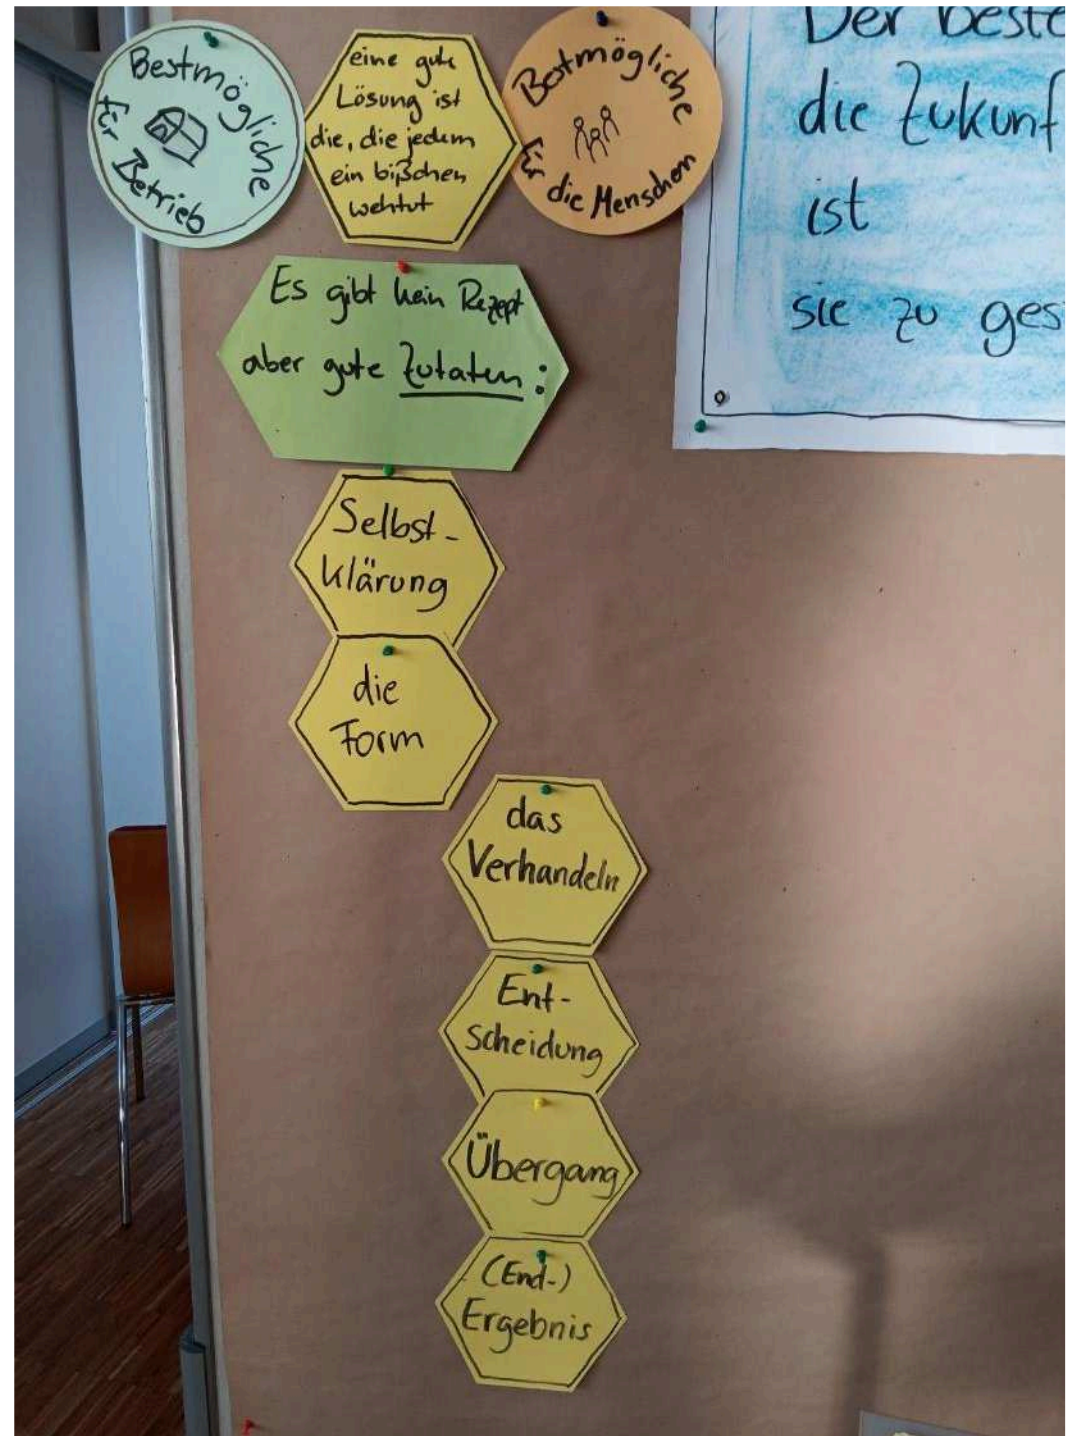 Bestmögliche
für Betrieb
eine gute
Lösung ist
die, die jedem
ein bißchen
wehtut
Bestmögliche
für die Menschen
Der beste
die Zukunf
ist
sie zu ges
Es gibt kein Rezept
aber gute Zutaten:
Selbst-
klärung
die
Form
das
Verhandeln
Ent-
scheidung
Übergang
(End-)
Ergebnis